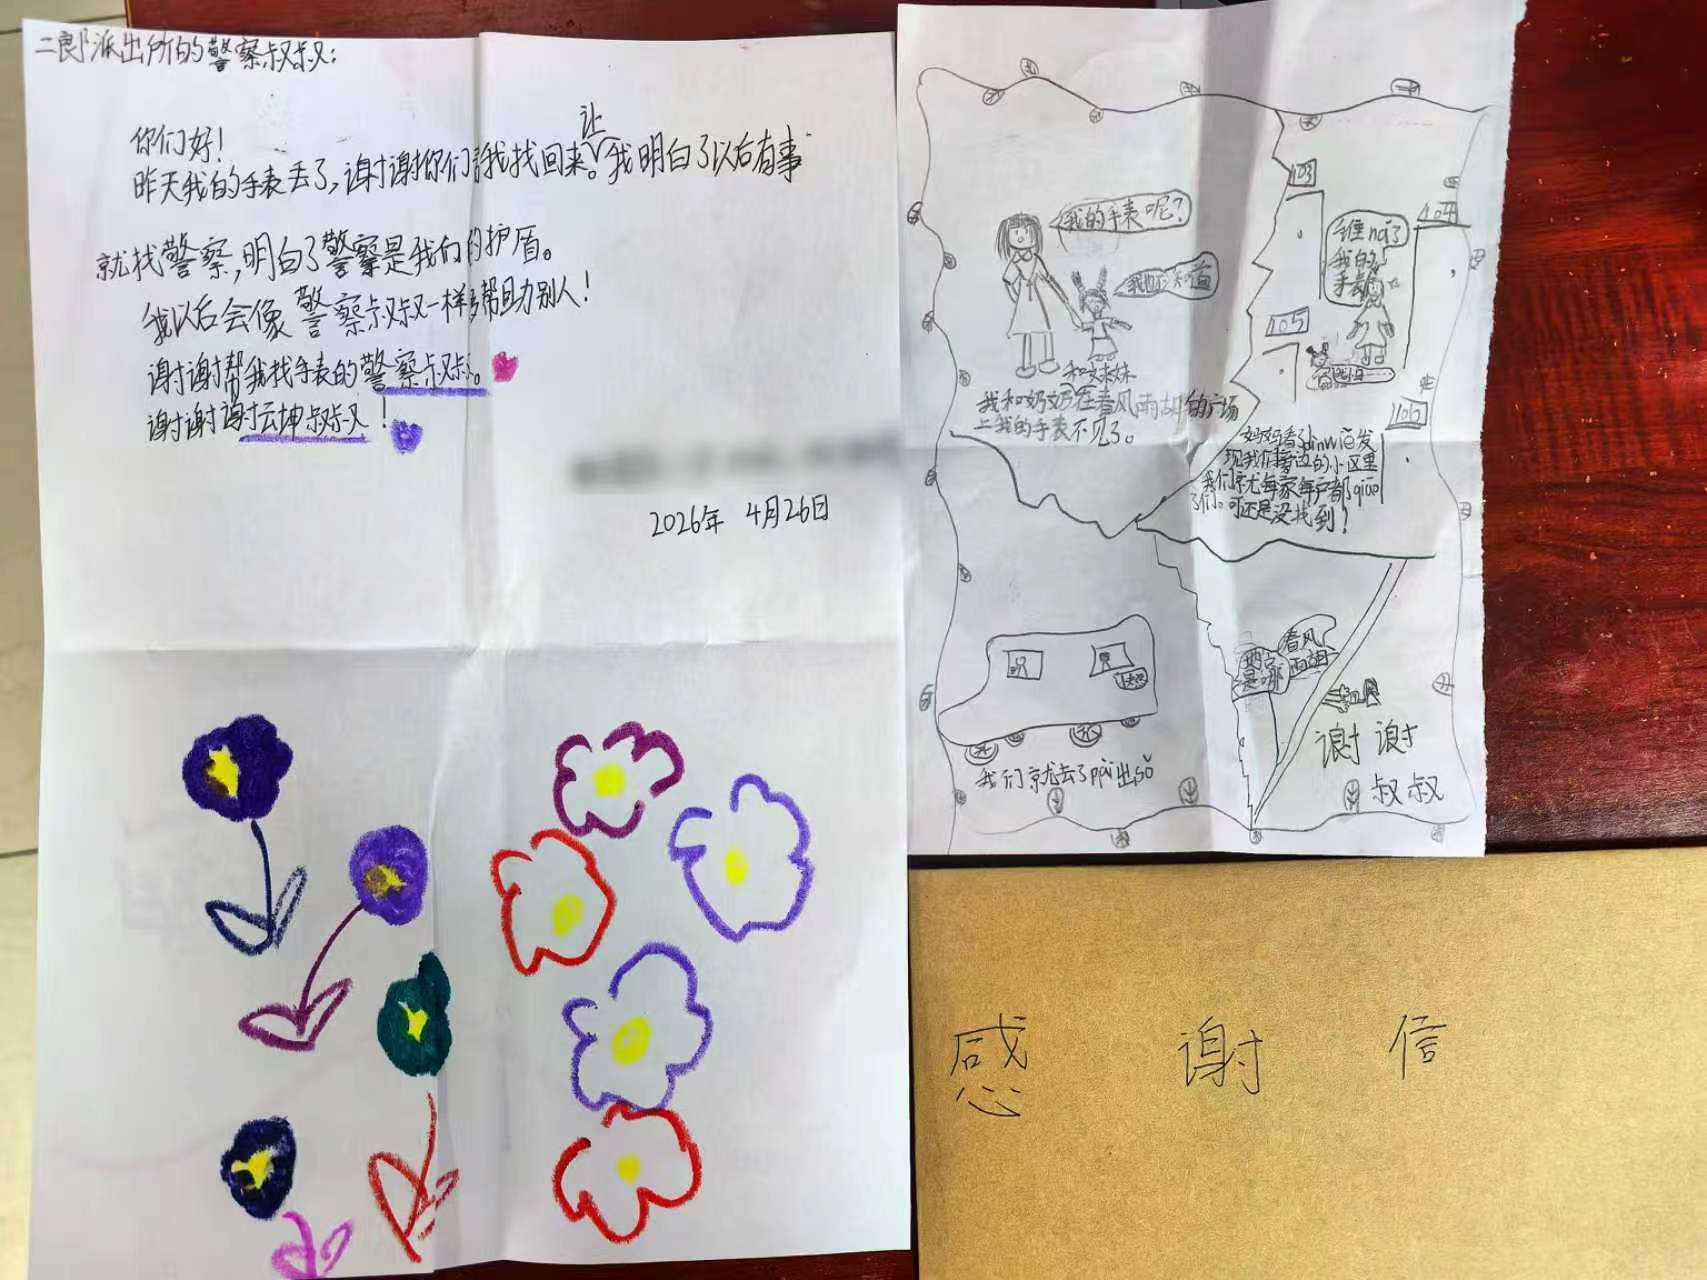 二郎派出所的警察叔叔：
你们好！
昨天我的手表丢了，谢谢你们找回来。让我明白了以后有事
就找警察，明白了警察是我们的护盾。
我以后会像警察叔叔一样帮助别人！
谢谢帮我找手表的警察叔叔。
谢谢谢坛坤叔叔！
2026年 4月26日
我的手表呢？
我也不知道
和妹妹
我和奶奶在春风南胡的广场
上我的手表不见了。
103
104
谁ná了
我的
手表
105
106
妈妈看了dìnwèi发
现我们旁边的小区里
我们就每家每户都qiāo
了们。可还是没找到？
我们就去了pài出sǒ
地点
是哪
春风
南胡
谢谢
叔叔
感 谢 信